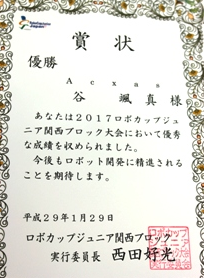 賞状
優勝
Acxas
谷 颯真 様
あなたは2017ロボカップジュ
ニア関西ブロック大会において優秀
な成績を収められました。
今後もロボット開発に精進され
ることを期待します。
平成29年1月29日
ロボカップジュニア関西ブロック
実行委員長 西田好光